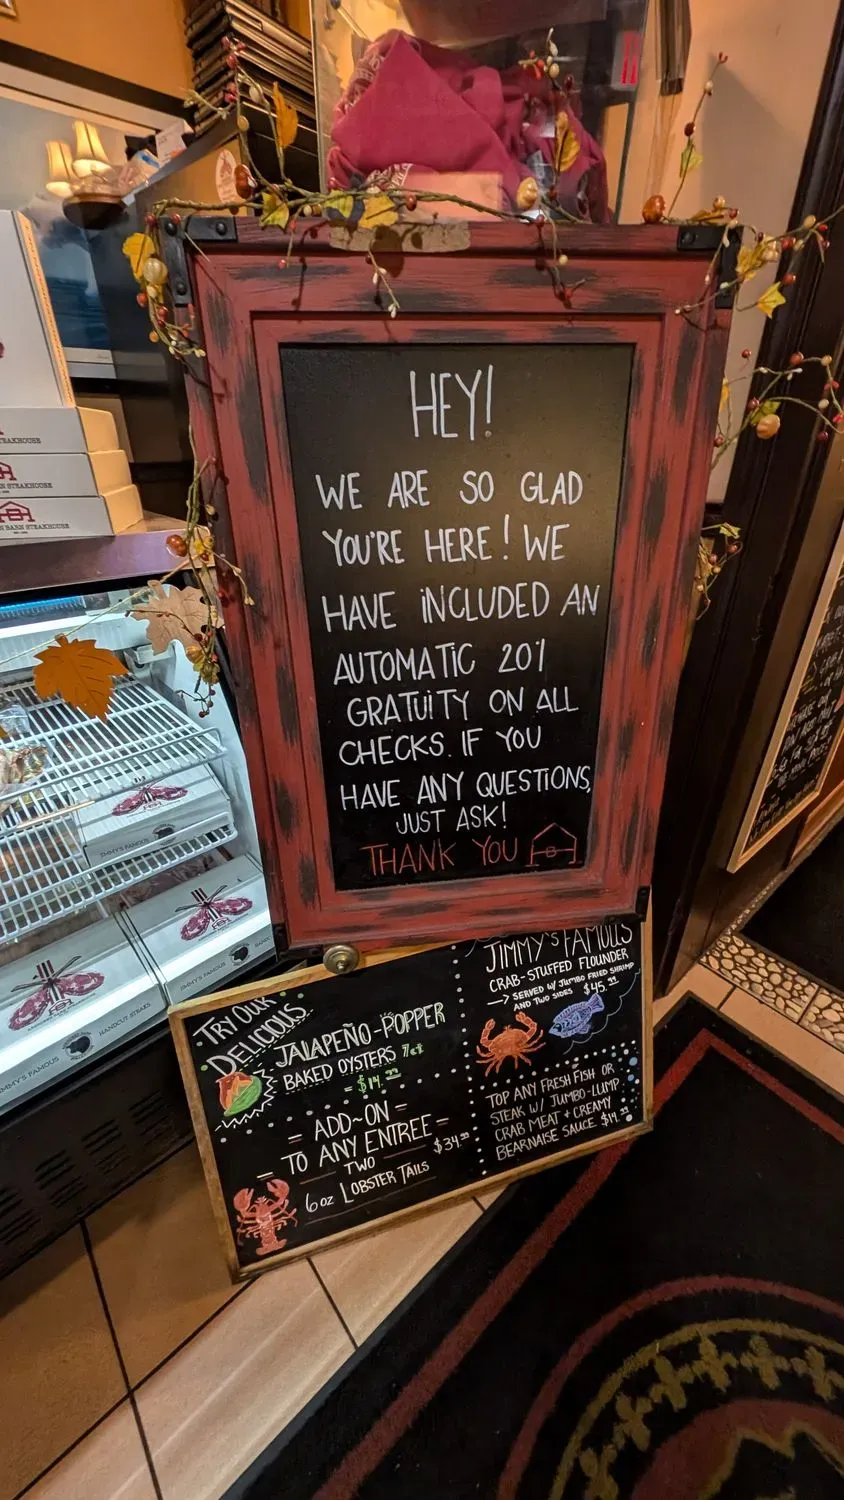 HEY!
WE ARE SO GLAD
YOU'RE HERE! WE
HAVE INCLUDED AN
AUTOMATIC 20%
GRATUITY ON ALL
CHECKS. IF YOU
HAVE ANY QUESTIONS,
JUST ASK!
THANK YOU
TRY OUR
DELICIOUS
JALAPEÑO-POPPER
BAKED OYSTERS 7ct
- $14.99
- ADD-ON -
- TO ANY ENTREE - $34.99
TWO
6oz LOBSTER TAILS
JIMMY'S FAMOUS
CRAB-STUFFED FLOUNDER
→ SERVED W/ JUMBO FRIED SHRIMP
AND TWO SIDES $45.99
TOP ANY FRESH FISH OR
STEAK W/ JUMBO-LUMP
CRAB MEAT + CREAMY
BEARNAISE SAUCE $14.99
STEAKHOUSE
STEAKHOUSE
BARN STEAKHOUSE
JIMMY'S FAMOUS
JIMMY'S FAMOUS
HANDCUT STEAKS
JIMMY'S FAMOUS